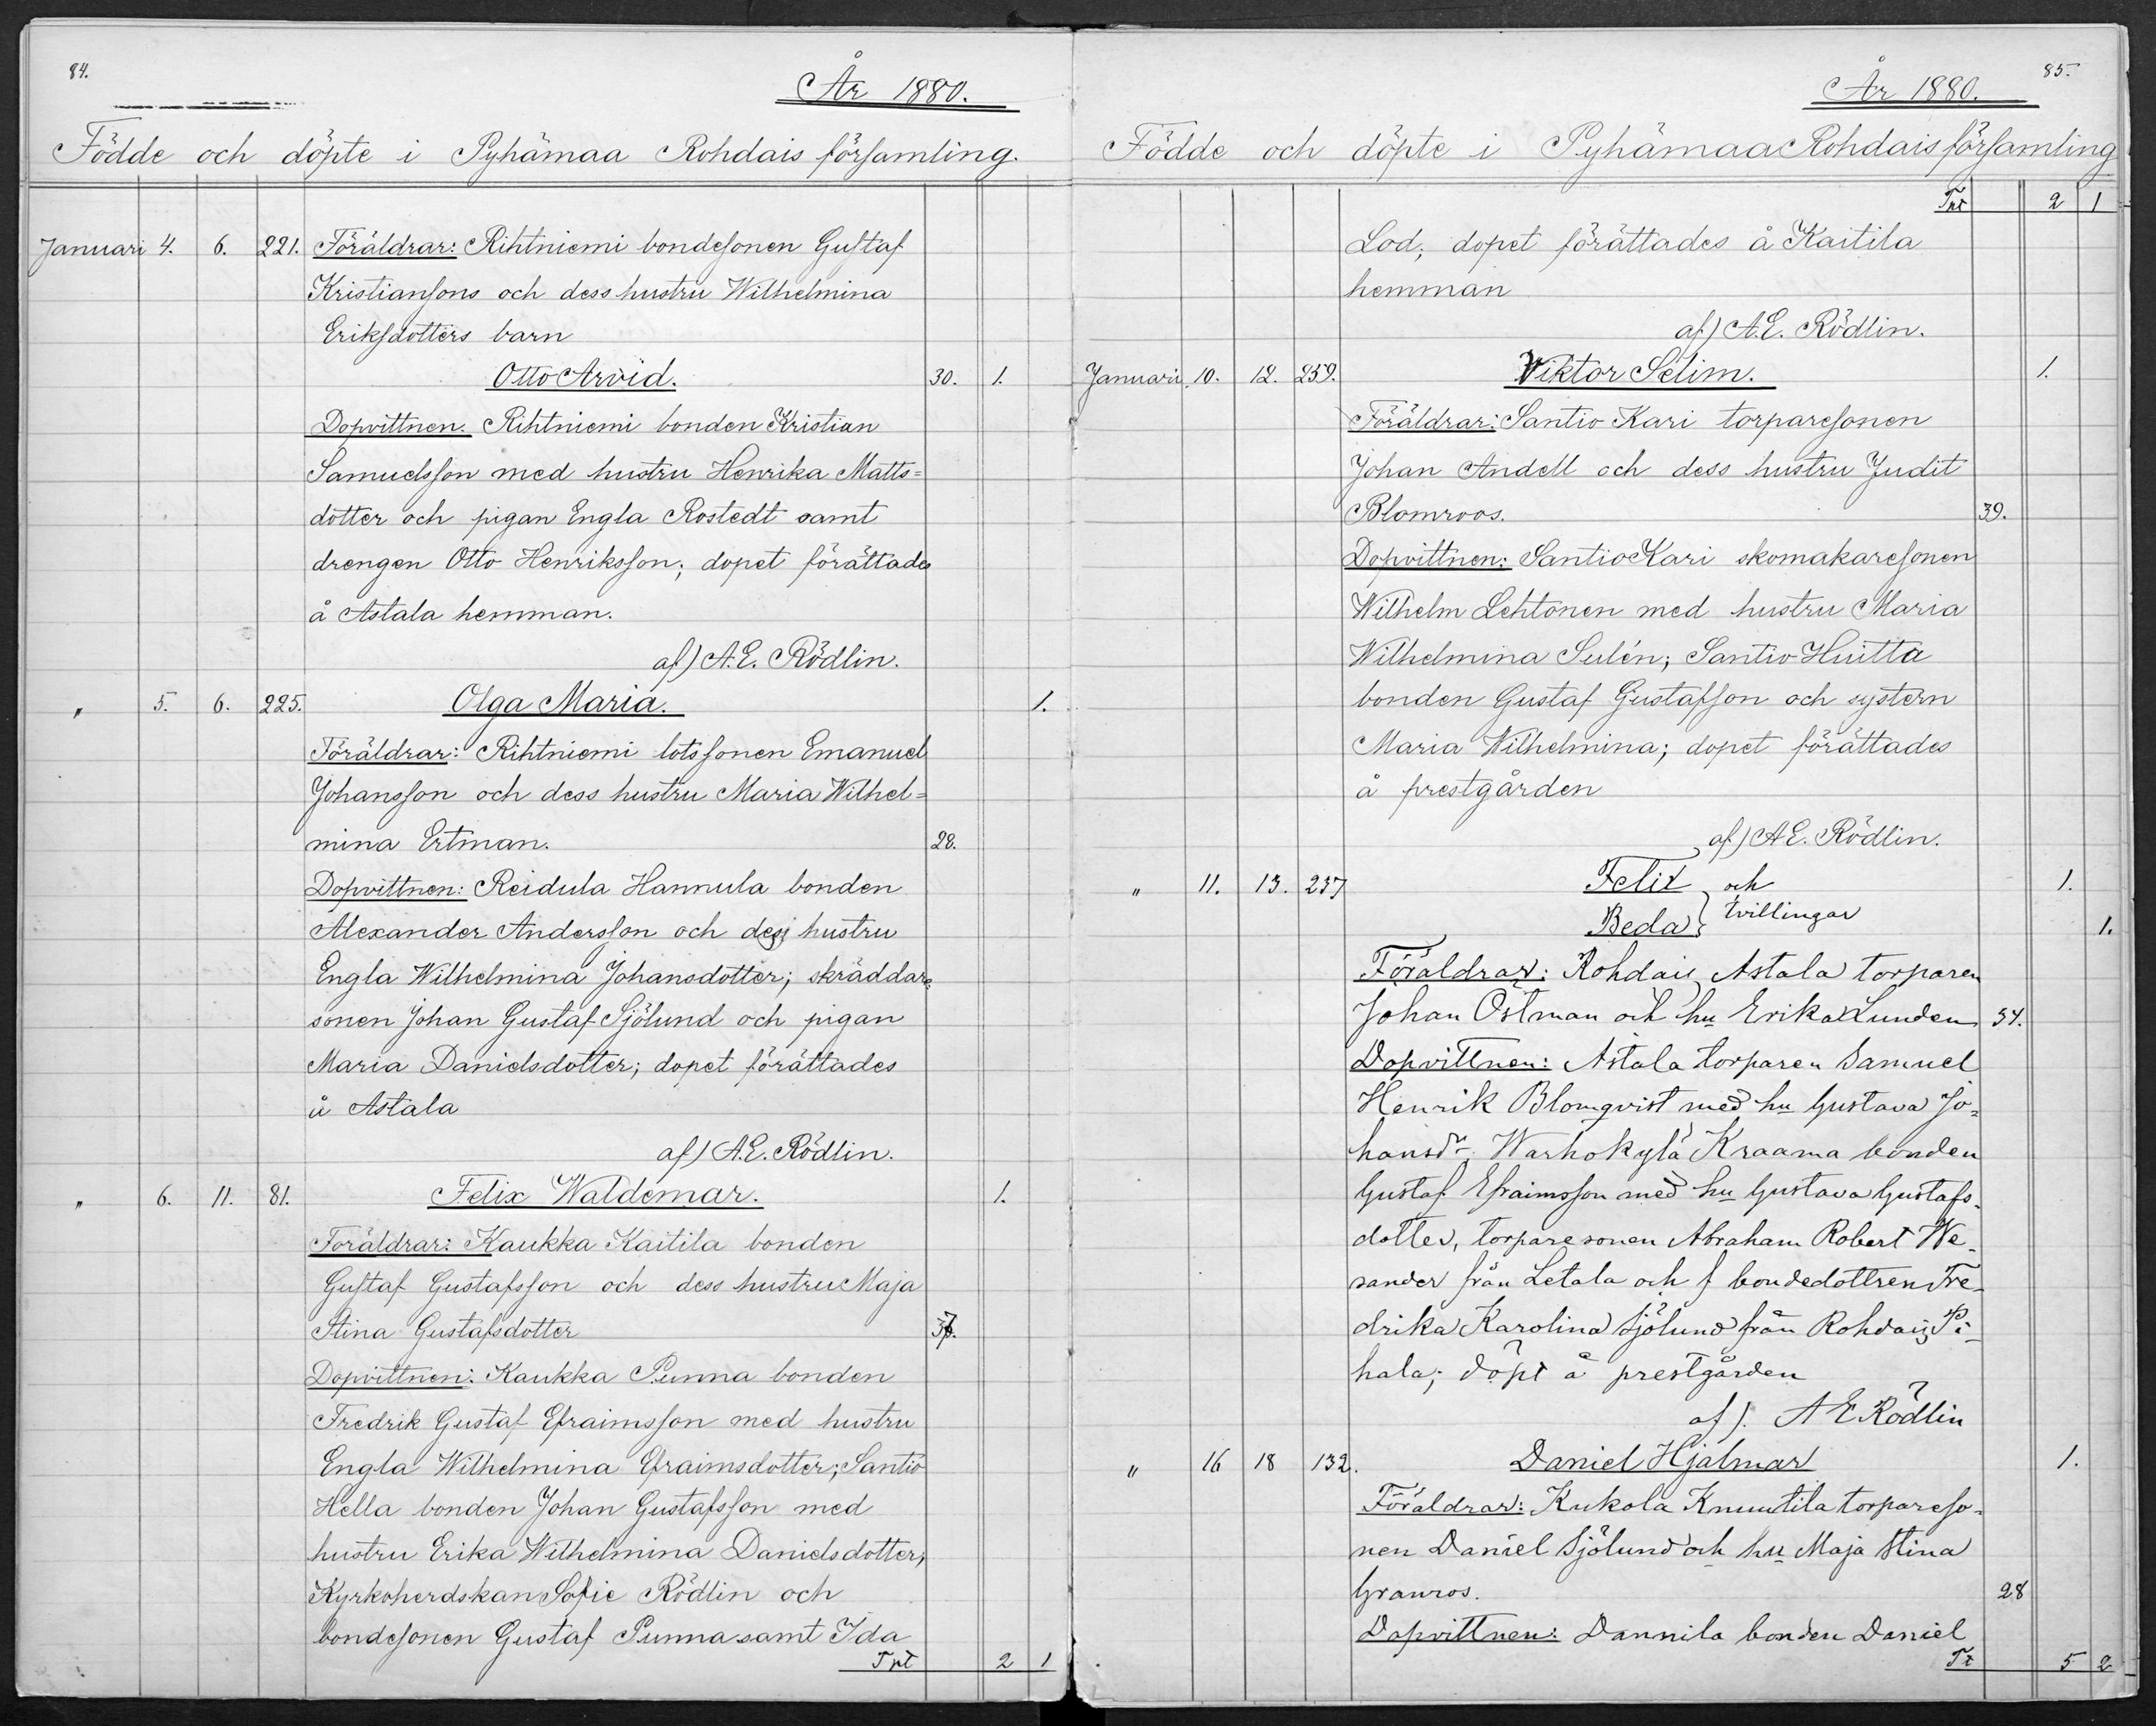 84.
År 1880.
Födde och döpte i Pyhämaa Rohdais församling.
Januari 4. 6. 221. Föräldrar: Rihtniemi bondesonen Gustaf
Kristiansons och dess hustru Wilhelmina
Eriksdotters barn
Otto Arvid. 30. 1.
Dopvittnen. Rihtniemi bonden Kristian
Samuelsson med hustru Henrika Matts=
dotter och pigan Engla Rostedt samt
drengen Otto Henriksson; dopet förättades
å Astala hemman.
af) A. E. Rödlin.
" 5. 6. 225. Olga Maria. 1.
Föräldrar: Rihtniemi lotssonen Emanuel
Johansson och dess hustru Maria Wilhel=
mina Ertman. 28.
Dopvittnen: Reidula Hannula bonden
Alexander Andersson och dess hustru
Engla Wilhelmina Johansdotter; skräddare
sonen Johan Gustaf Sjölund och pigan
Maria Danielsdotter; dopet förättades
å Astala
af) A. E. Rödlin.
" 6. 11. 81. Felix Waldemar. 1.
Föräldrar: Kaukka Kaitila bonden
Gustaf Gustafsson och dess hustru Maja
Stina Gustafsdotter
Dopvittnen: Kaukka Punna bonden
Fredrik Gustaf Efraimsson med hustru
Engla Wilhelmina Efraimsdotter; Santio
Hella bonden Johan Gustafsson med
hustru Erika Wilhelmina Danielsdotter,
Kyrkoherdskan Sofie Rödlin och
bondesonen Gustaf Punna samt Ida
Tpt 2 1
85.
År 1880.
Födde och döpte i Pyhämaa Rohdais församling
Tpt 2 1
Lod; dopet förättades å Kaitila
hemman
af) A. E. Rödlin.
Januari 10. 12. 259. Viktor Selim. 1.
Föräldrar: Santio Kari torparesonen
Johan Andell och dess hustru Judit
Blomroos. 39.
Dopvittnen: Santio Kari skomakaresonen
Wilhelm Lehtonen med hustru Maria
Wilhelmina Sulén; Santio Huitta
bonden Gustaf Gustafsson och systern
Maria Wilhelmina; dopet förättades
å prestgården
af) A E. Rödlin.
" 11. 13. 237 Felix och 1.
Beda } tvillingar 1.
Föräldrar: Rohdais Astala torparen
Johan Östman och hu Erika Lunden 34.
Dopvittnen: Astala torparen Samuel
Henrik Blomqvist med hu Gustava Jo=
hansdr, Warhokylä Kraama bonden
Gustaf Efraimsson med hu Gustava Gustafs-
dotter, torparesonen Abraham Robert We-
sander från Letala och f bondedottren Fre-
drika Karolina Sjölund från Rohdais Pi-
hala; döpt å prestgården
af). A E Rödlin
" 16 18 132. Daniel Hjalmar 1.
Föräldrar: Kukola Knuutila torpareso-
nen Daniel Sjölund och hu Maja Stina
Granros. 28
Dopvittnen: Dannila bonden Daniel
Tt 5 2